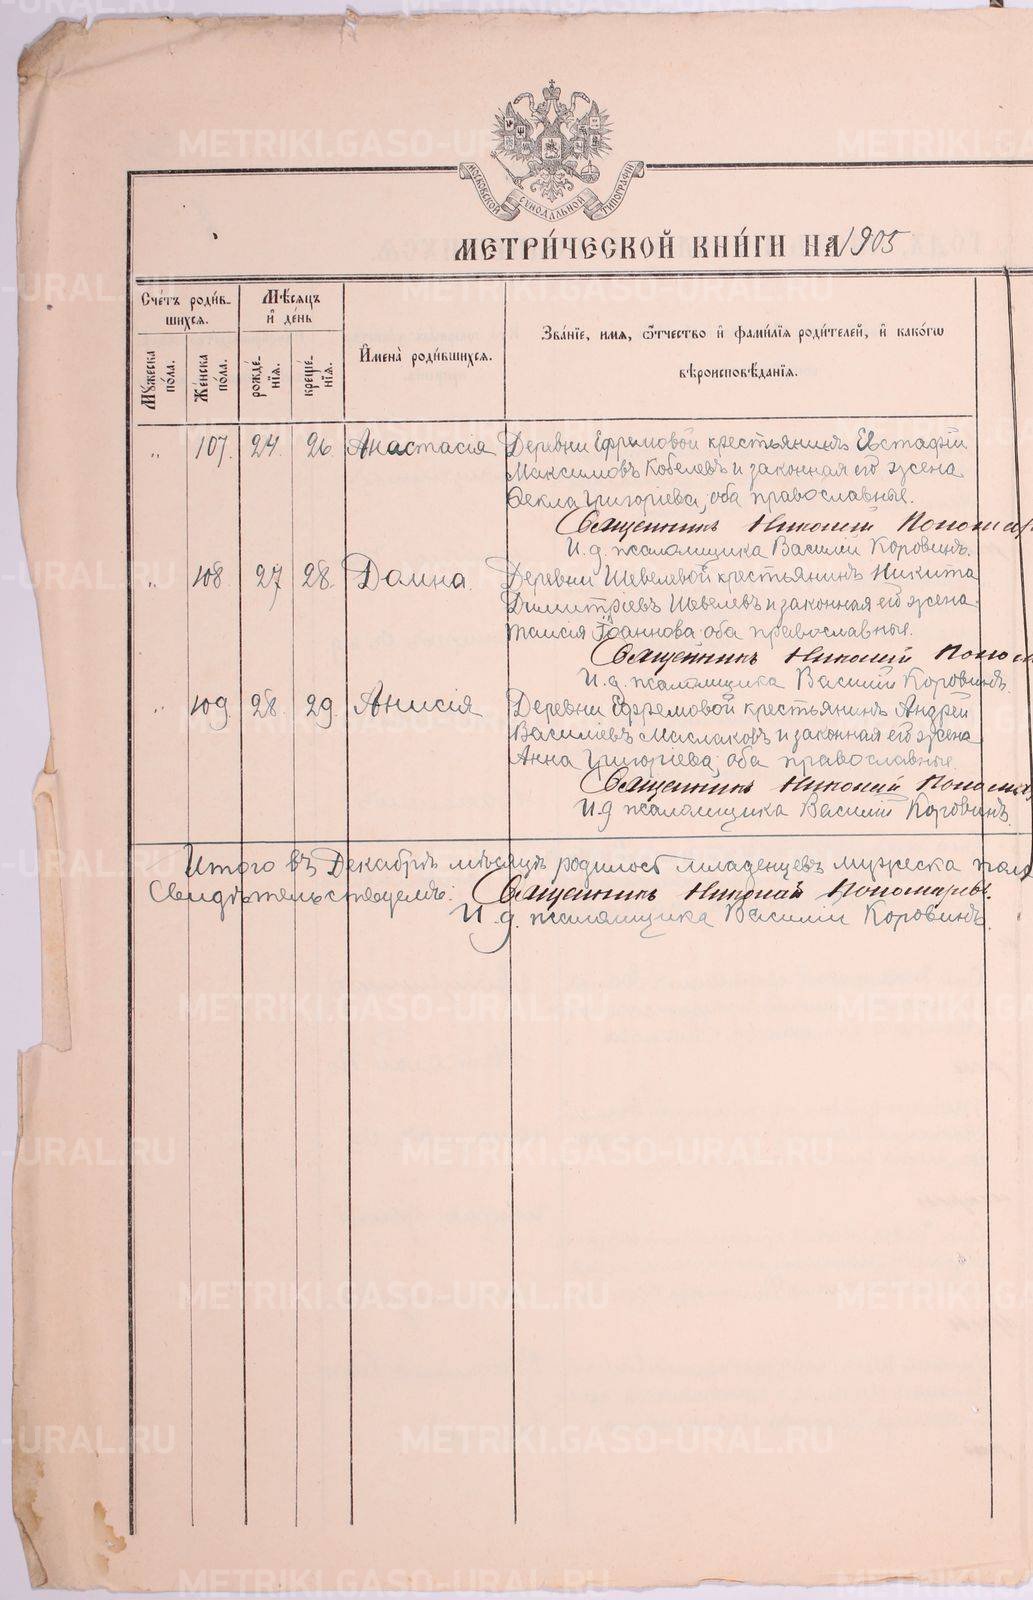 МОСКОВСКОЙ СѴНОДАЛЬНОЙ ТИПОГРАФІИ
МЕТРИ́ЧЕСКОЙ КНИ́ГИ НА 1905
Сче́тъ роди́в-
шихся.
Мѣ́сяцъ
и҆ де́нь
И҆мена̀ роди́вшихся.
Зва́нїе, имя, ѻ҆́тчество и҆ фами́лїѧ роди́телей, и҆ како́гѡ
вѣроисповѣ́данїѧ.
Мꙋ́жеска
по́ла.
Же́нска
по́ла.
рожде́-
нїѧ.
креще́-
нїѧ.
„ 107. 24. 26. Анастасія Деревни Ефремовой крестьянинъ Евстафій
Максимовъ Кобелевъ и законная его жена
Ѳекла Григоріева, оба православные.
Священникъ Николай Пономар
И. д. псаломщика Василій Коровинъ.
„ 108. 27 28. Домна. Деревни Шевелевой крестьянинъ Никита
Димитріевъ Шевелевъ и законная его жена
Таисія Іоаннова оба православные.
Священникъ Николай Поном
И. д. псаломщика Василій Коровинъ.
„ 109. 28. 29. Анисія Деревни Ефремовой крестьянинъ Андрей
Василіевъ Маслаковъ и законная его жена
Анна Григоріева, оба православные.
Священникъ Николай Понома
И. д псаломщика Василій Коровинъ.
Итого въ Декабрѣ мѣсяцѣ родилось младенцевъ мужеска пола
Свидѣтельствуемъ: Священникъ Николай Пономаревъ.
И. д. псаломщика Василій Коровинъ.
METRIKI.GASO-URAL.RU